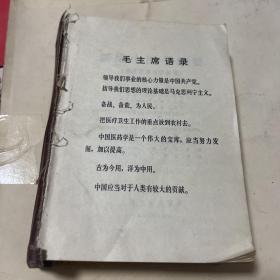 毛主席语录
领导我们事业的核心力量是中国共产党。
指导我们思想的理论基础是马克思列宁主义。
备战、备荒、为人民。
把医疗卫生工作的重点放到农村去。
中国医药学是一个伟大的宝库，应当努力发
掘，加以提高。
古为今用，洋为中用。
中国应当对于人类有较大的贡献。